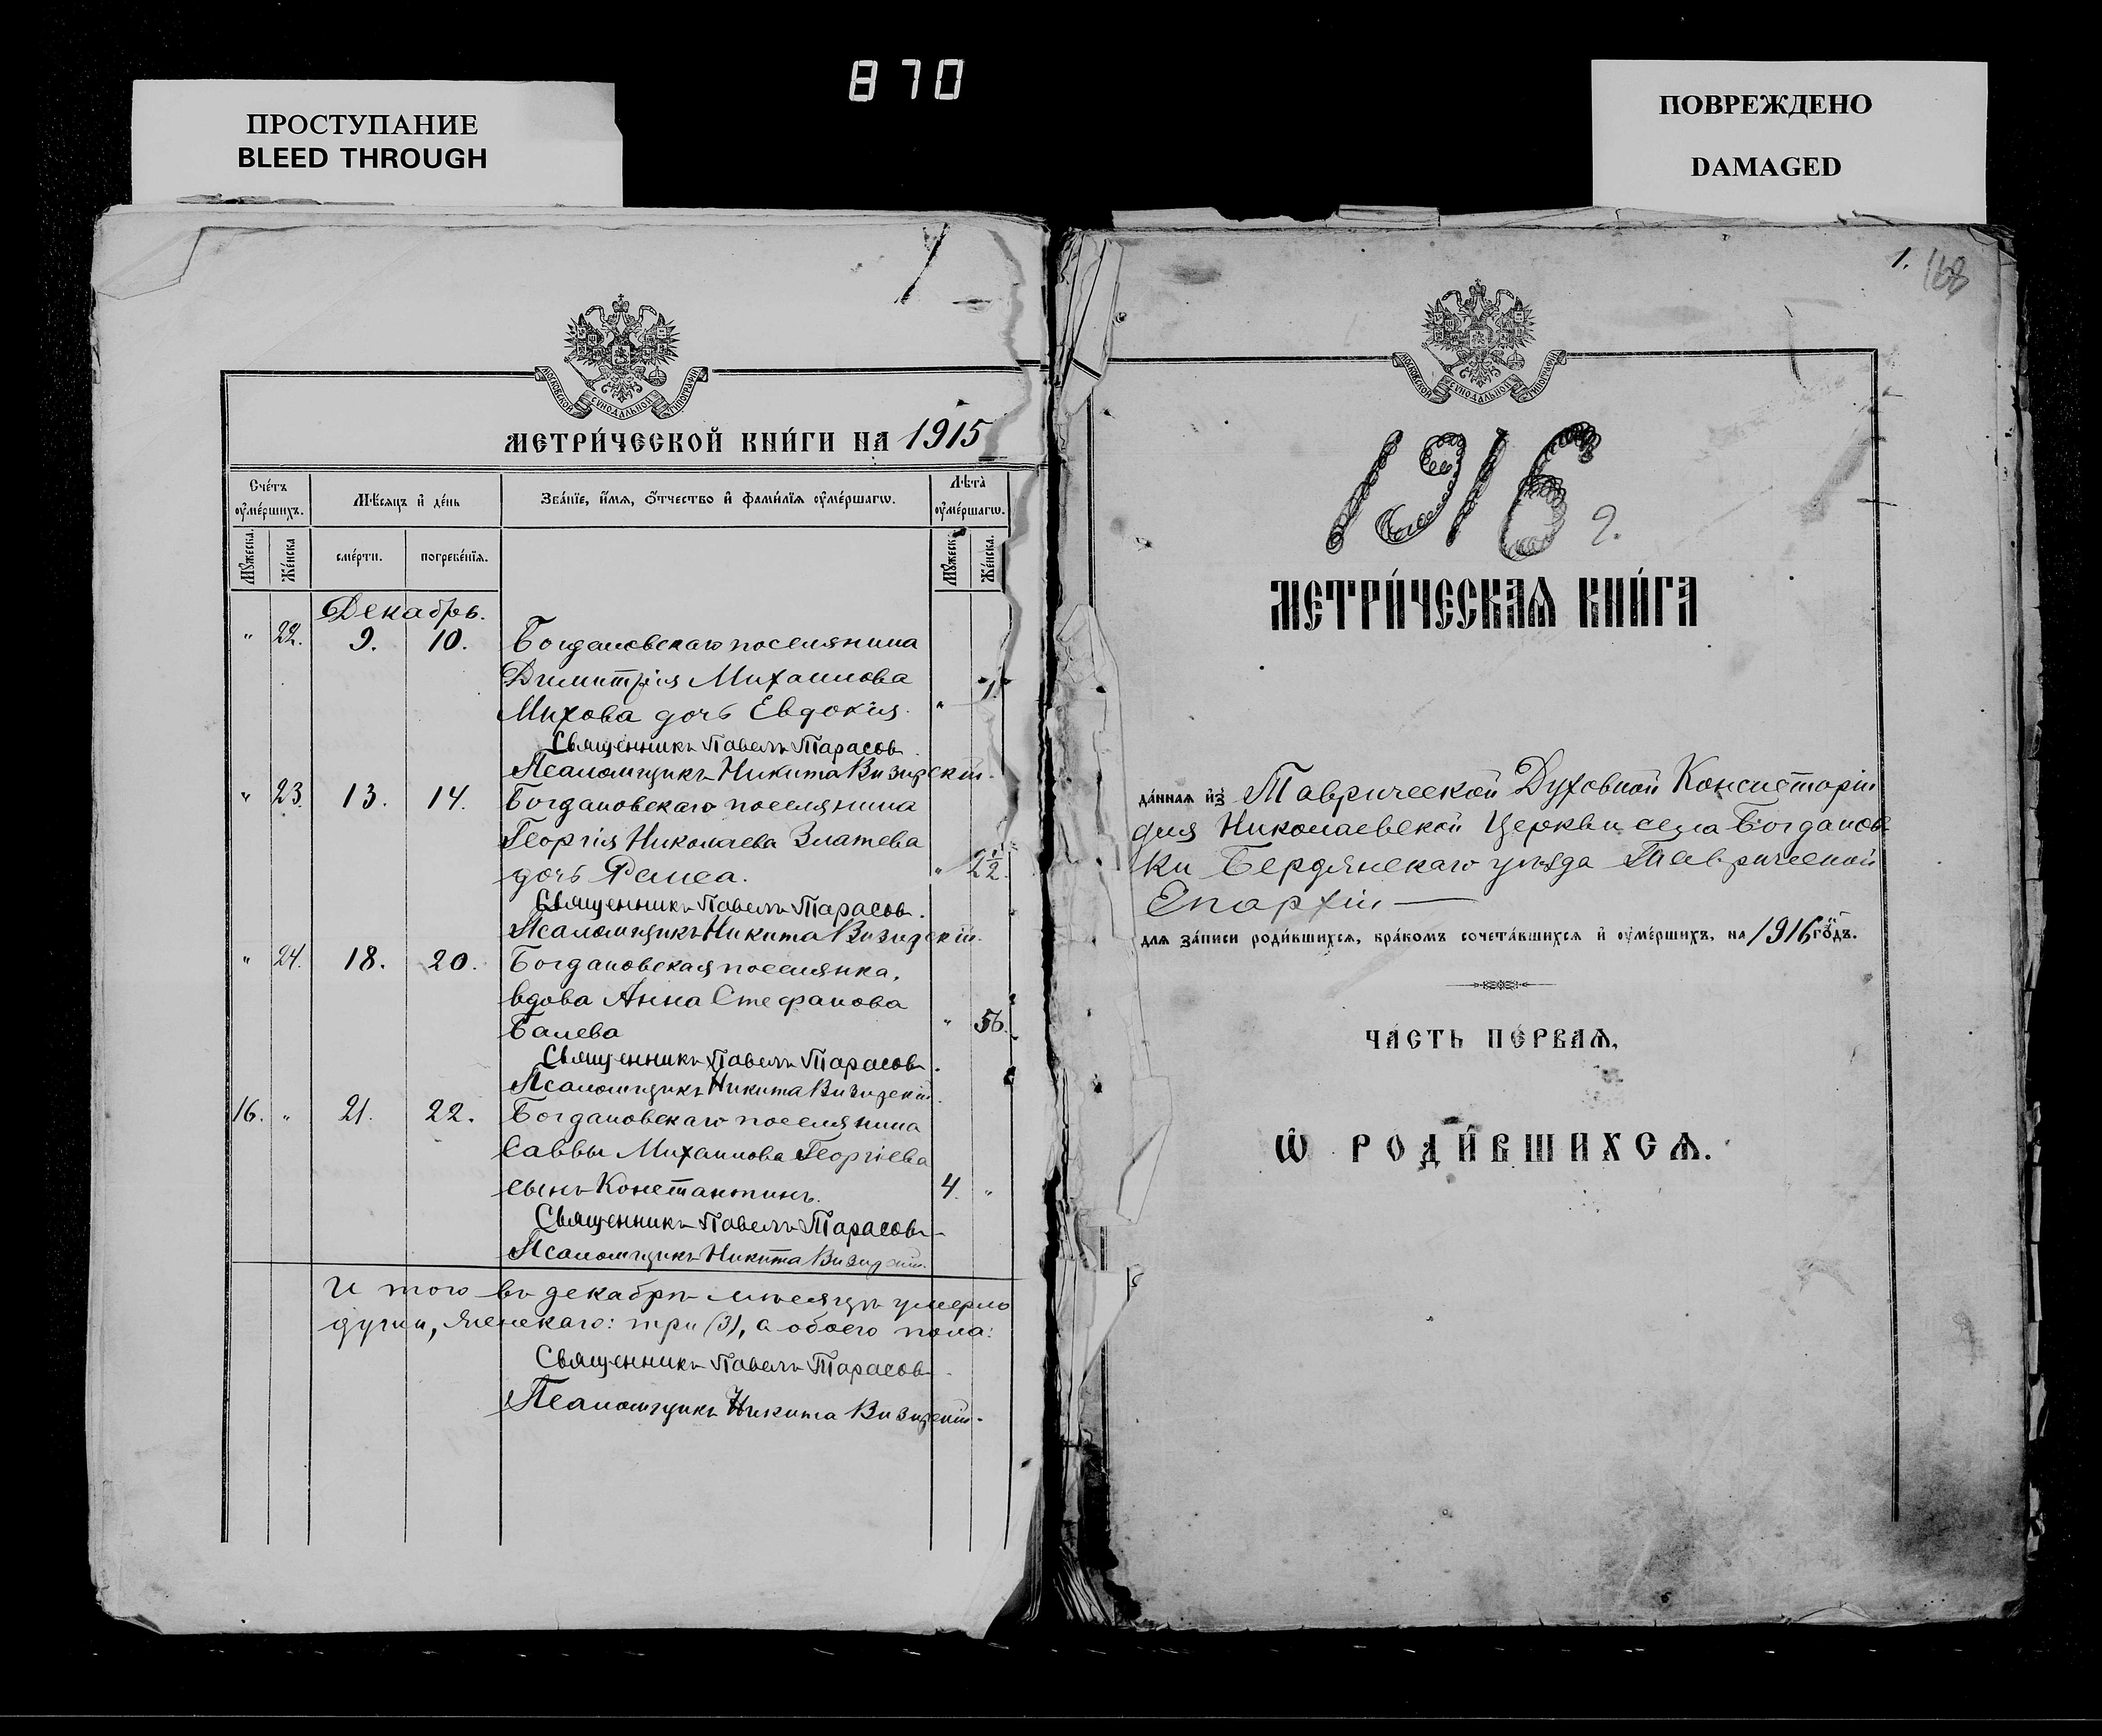 870
ПРОСТУПАНИЕ
BLEED THROUGH
ПОВРЕЖДЕНО
DAMAGED
МОСКОВСКОЙ СУНОДАЛЬНОЙ ТИПОГРАФІИ
МЕТРИ́ЧЕСКОЙ КНИ́ГИ НА 1915
Сче́тъ ᲂу҆ме́ршихъ.
Мѣ́сяцъ и҆ де́нь
Зва́нїе, и҆́мя, ѻ҆́тчество и҆ фами́лїя ᲂу҆ме́ршагѡ.
Лѣта̀ ᲂу҆ме́ршагѡ.
Мꙋ́жеска.
Же́нска
сме́рти.
погребе́нїя.
Мꙋ́жеск
Же́нска.
Декабрь.
" 22. 9. 10. Богдановскаго поселянина
Димитрія Михаилова
Михова дочь Евдокія. " 1.
Священникъ Павелъ Тарасов.
Псаломщикъ Никита Визирскій.
" 23. 13. 14. Богдановскаго поселянина
Георгія Николаева Златева
дочь Раиса. " 2½.
Священникъ Павелъ Тарасов.
Псаломщикъ Никита Визирскій.
" 24. 18. 20. Богдановская поселянка,
вдова Анна Стефанова
Балева " 56.
Священникъ Павелъ Тарасов.
Псаломщикъ Никита Визирскій.
16. " 21. 22. Богдановскаго поселянина
Саввы Михаилова Георгіева
сынъ Константинъ. 4. "
Священникъ Павелъ Тарасов
Псаломщикъ Никита Визирскій.
Итого въ декабрѣ мѣсяцѣ умерло
души, женскаго: три (3), а обоего пола:
Священникъ Павелъ Тарасов.
Псаломщикъ Никита Визирскій.
1. 168
МОСКОВСКОЙ СУНОДАЛЬНОЙ ТИПОГРАФІИ
1916 г.
МЕТРИ́ЧЕСКАѦ КНИ́ГА
да́нная и҆з̾ Таврической Духовной Консисторіи
для Николаевской Церкви села Богданов
ки Бердянскаго уѣзда Таврической
Епархіи —
для за́писи роди́вшихся, бра́комъ сочета́вшихся и҆ ᲂу҆ме́ршихъ, на 1916 го́дъ.
ЧА́СТЬ ПЕ́РВАѦ,
Ѡ҆ РОДИ́ВШИХСѦ.